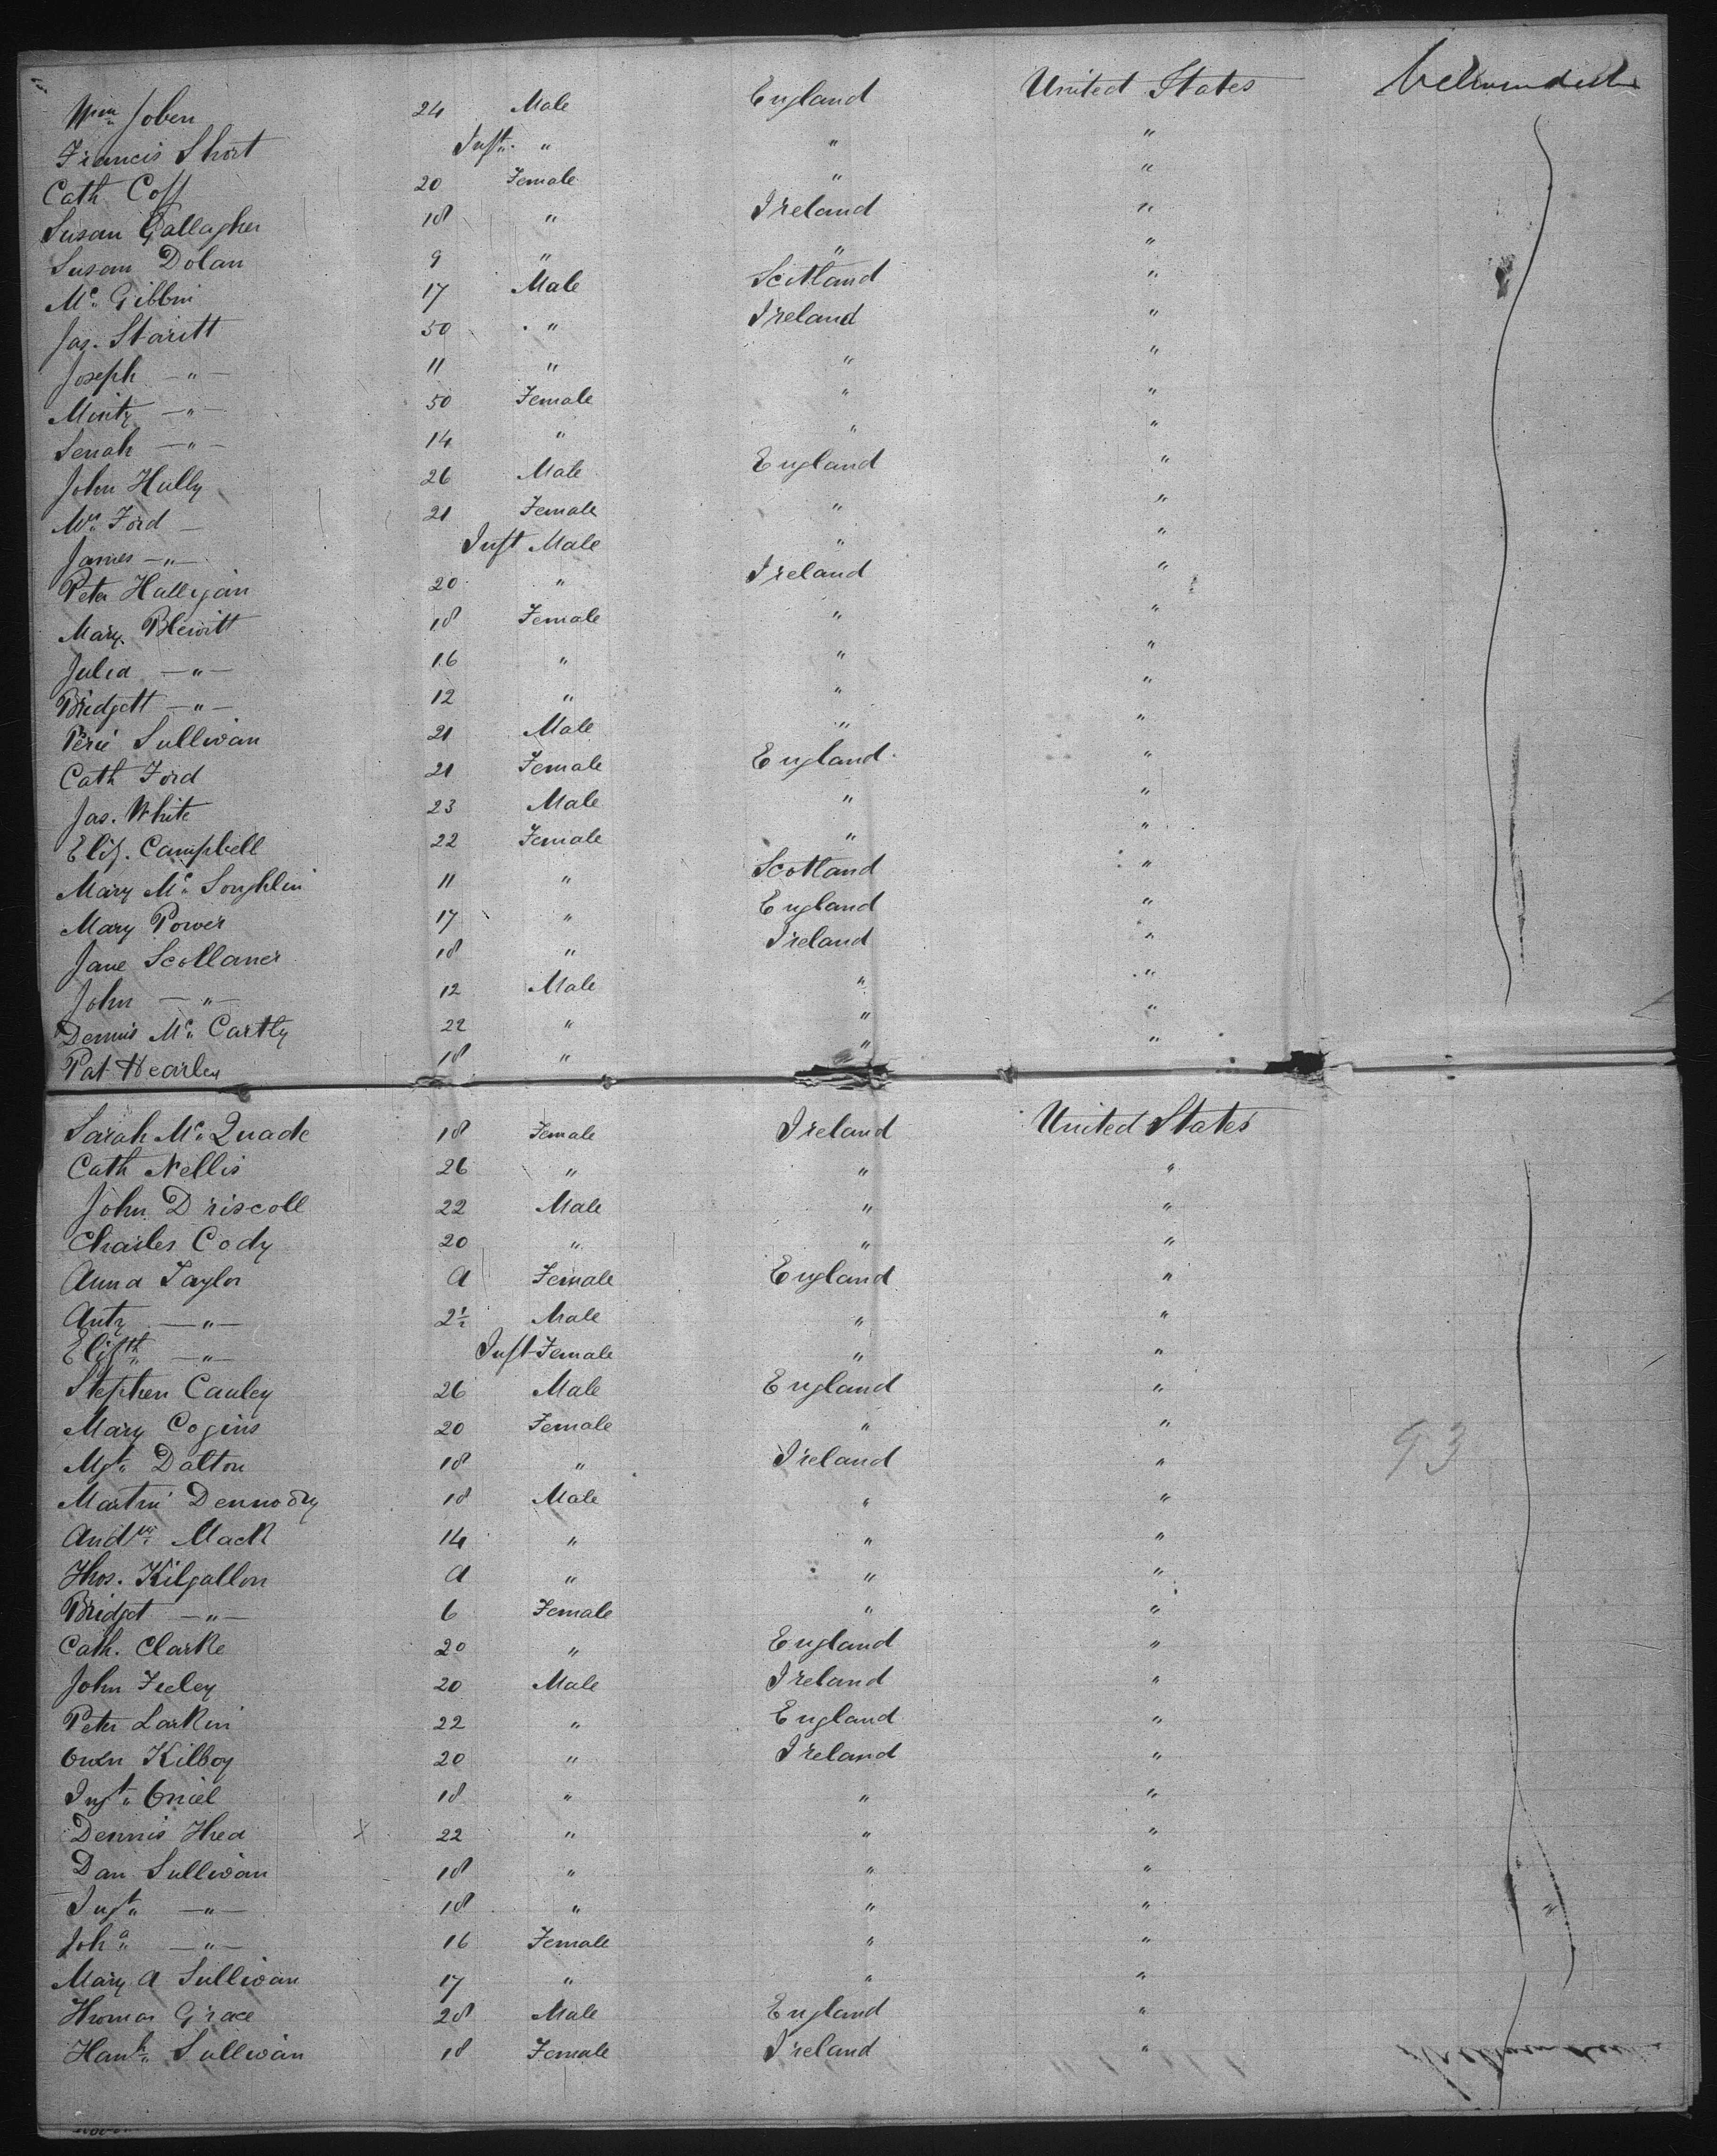 Wm Joben 24 Male England United States
Francis Short Inft " " "
Cath Coff 20 Female " "
Susan Gallagher 18 " Ireland "
Susan Dolan 9 " " "
Mc Gibbin 17 Male Scotland "
Jas. Staritt 50 " Ireland "
Joseph — " — 11 " " "
— " — 50 Female " "
— " — 14 " " "
John Hully 26 Male England "
Mrs Ford — 21 Female " "
James — " — Inft Male " "
Peter Halligan 20 " Ireland "
Mary Blewitt 18 Female " "
Julia — " — 16 " " "
Bridgett — " — 12 " " "
Sullivan 21 Male " "
Cath Ford 21 Female England "
Jas. White 23 Male " "
Eliz. Campbell 22 Female " "
Mary Mc Loughlin 11 " Scotland "
Mary Power 17 " England "
Jane Scollaner 18 " Ireland "
John — " — 12 Male " "
Dennis Mc Carthy 22 " " "
Pat Hearley 18 " " "
Sarah Mc Quade 18 Female Ireland United States
Cath Nellis 26 " " "
John Driscoll 22 Male " "
Charles Cody 20 " " "
Anna Taylor a Female England "
Anty — " — 2½ Male " "
Elizth — " — Inft Female " "
Stephen Cauley 26 Male England "
Mary Cogins 20 Female " "
Mgt Dalton 18 " Ireland "
Martin Dennody 18 Male " "
Andw Mack 14 " " "
Thos. Kilgallon a " " "
Bridget — " — 6 Female " "
Cath. Clarke 20 " England "
John Feeley 20 Male Ireland "
Peter Larkin 22 " England "
Owen Kilboy 20 " Ireland "
Oniel 18 " " "
Dennis Shea x 22 " " "
Dan Sullivan 18 " " "
— " — 18 " " "
Joha — " — 16 Female " "
Mary A Sullivan 17 " " "
Thomas Grace 28 Male England "
Hanh Sullivan 18 Female Ireland "
93